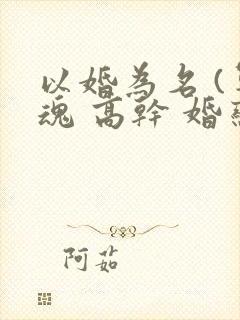 以婚為名 (
魂 高幹 婚
阿茹